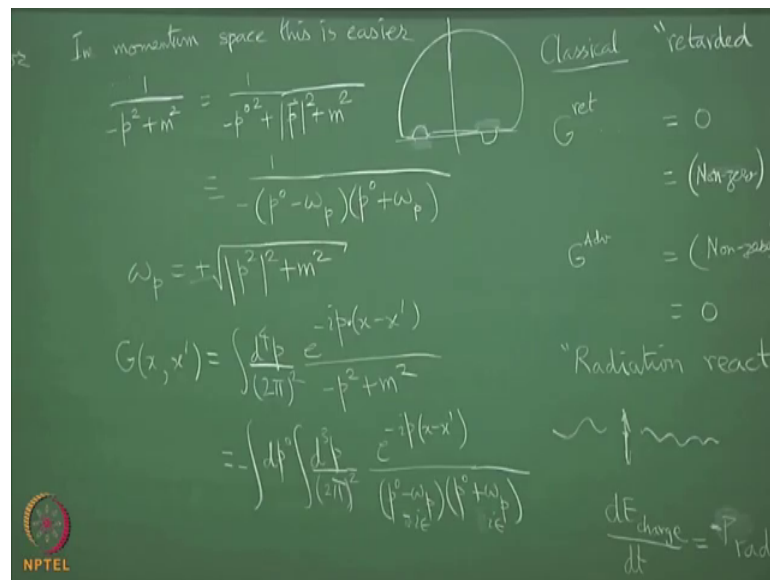 In momentum space this is easier
1/(-p²+m²) = 1/(-p⁰² + |p⃗|² + m²)
= 1/(-(p⁰-ω_p)(p⁰+ω_p))
ω_p = ±√(|p²|²+m²)
G(x,x') = ∫ d⁴p/(2π)² e^(-ip·(x-x'))/(-p²+m²)
= -∫dp⁰ ∫ d³p/(2π)² e^(-ip(x-x'))/((p⁰-ω_p iε)(p⁰+ω_p iε))
Classical "retarded
G^ret = 0
= (Non-zero)
G^Adv = (Non-zero
= 0
"Radiation react
dE_charge/dt = -P_rad
NPTEL